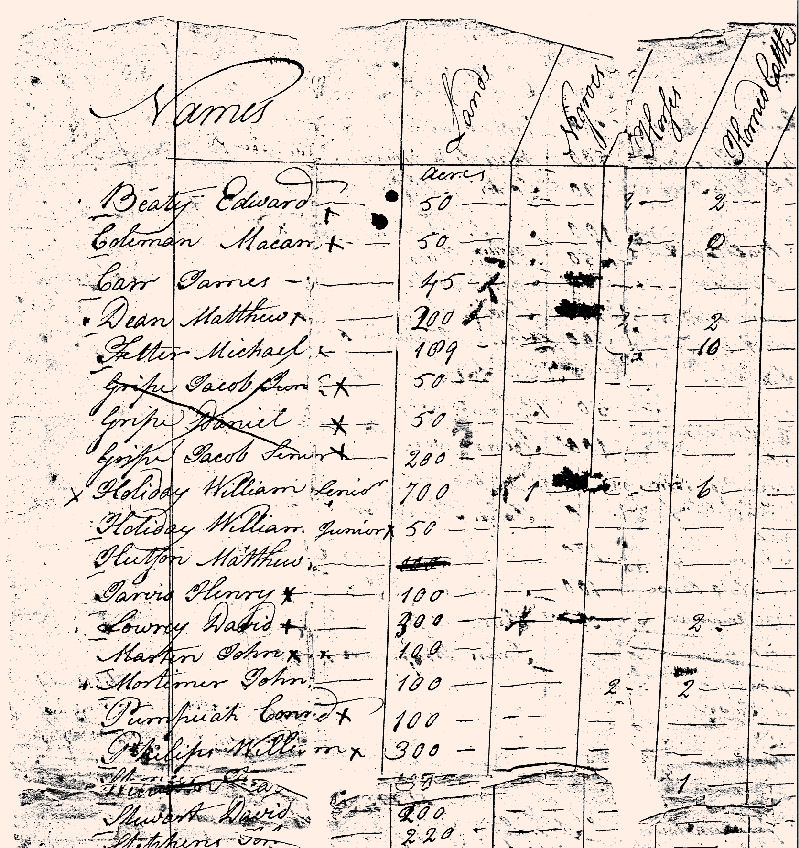 Names Lands Negroes Horses Horned Cattle
acres
Beaty Edward 50 2 2
Coleman Macam x 50 0
Carr James 45
Dean Matthew x 200 2
Fetter Michael 109 10
Gripe Jacob Jun x 50
Gripe Daniel x 50
Gripe Jacob Senir x 200
x Holiday William Senior 700 1 6
Holiday William Junior x 50
Hutson Matthew
Jarvis Henry x 100
Lowrey David x 300 2
Martin John x 100
Mortimer John 100 2 2
Conrad x 100
Philips William x 300
1
Stewart David 200
Stephens 220